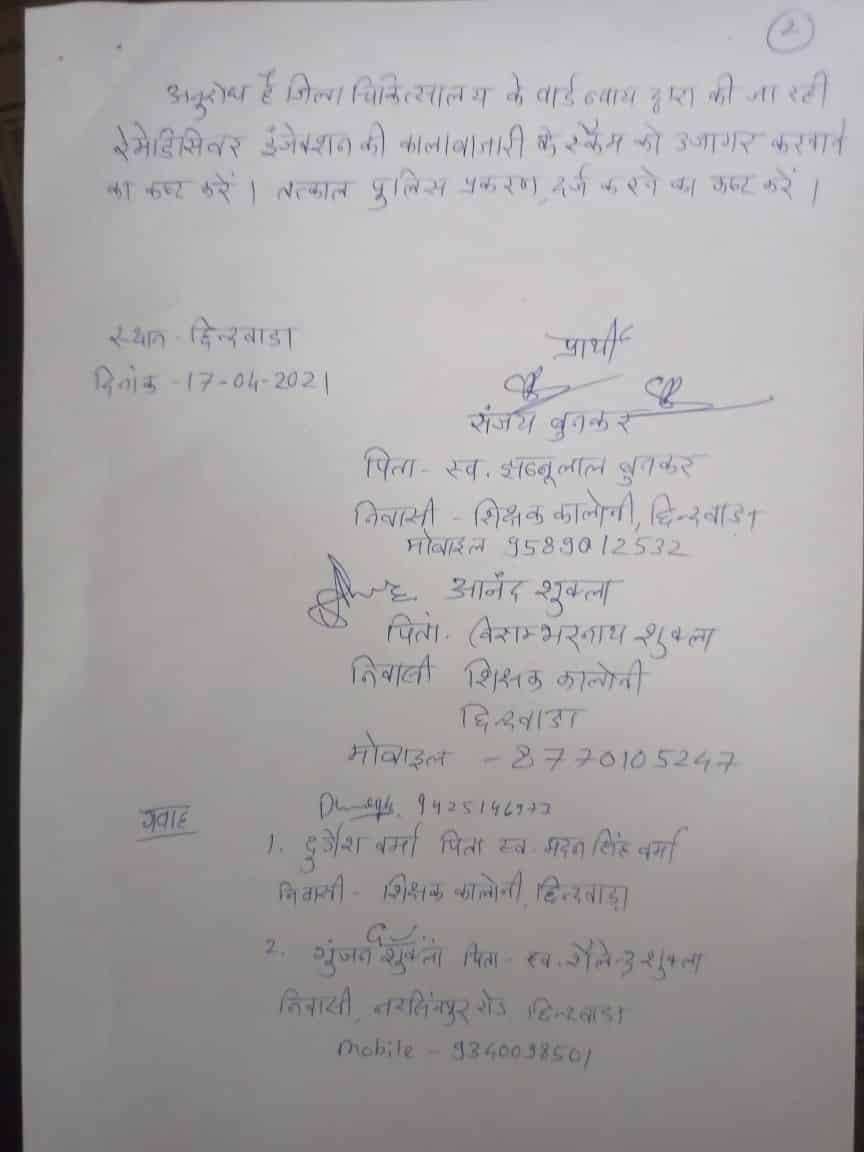 2
अनुरोध है जिला चिकित्सालय के वार्ड ब्वाय द्वारा की जा रही
रेमेडिसिवर इंजेक्शन की कालाबाजारी के स्कैम को उजागर करवाने
का कष्ट करें । तत्काल पुलिस प्रकरण दर्ज करने का कष्ट करें ।
स्थान - छिन्दवाडा
प्रार्थी
दिनांक -17-04-2021
संजय बुनकर
पिता - स्व. झब्बूलाल बुनकर
निवासी - शिक्षक कालोनी, छिन्दवाडा
मोबाइल 9589012532
आनंद शुक्ला
पिता. विशम्भरनाथ शुक्ला
निवासी शिक्षक कालोनी
छिन्दवाडा
मोबाइल - 8770105247
गवाह
1. दुर्गेश वर्मा पिता स्व. मदन सिंह वर्मा
निवासी - शिक्षक कालोनी, छिन्दवाडा
2. गुंजन शुक्ला पिता - स्व. शैलेन्द्र शुक्ला
निवासी, नरसिंगपुर रोड छिन्दवाडा
mobile - 9340098501